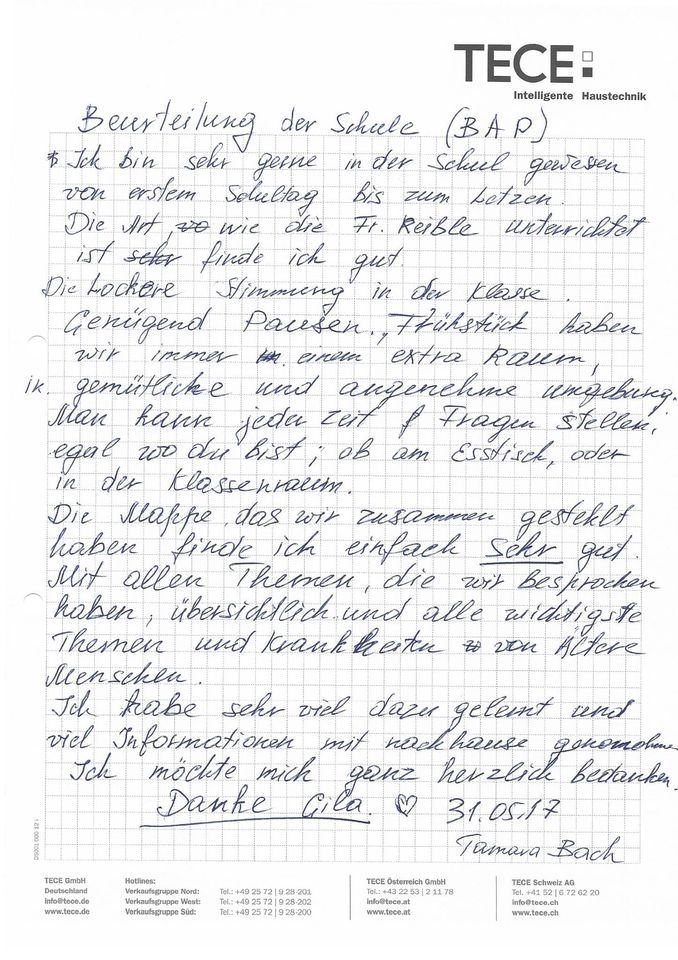 TECE
Intelligente Haustechnik
Beurteilung der Schule (BAP)
Ich bin sehr gerne in der Schul gewesen
von erstem Schultag bis zum Letzen.
Die Art, wie die Fr. Reible unterrichtet
ist finde ich gut.
Die Lockere Stimmung in der Klasse.
Genügend Pausen. Frühstück haben
wir immer einem extra Raum,
in. gemütliche und angenehme umgebung.
Man kann jeder Zeit Fragen stellen,
egal wo du bist; ob am Esstisch, oder
in der Klassenraum.
Die Mappe, das wir zusammen gestehlt
haben finde ich einfach sehr gut.
Mit allen Themen, die wir besprochen
haben, übersichtlich und alle wichtigste
Themen und Krankheiten von Ältere
Menschen.
Ich habe sehr viel dazu gelernt und
viel Informationen mit nachhause genomohme
Ich möchte mich ganz herzlich bedanken.
Danke Gila. ♡ 31.05.17
Tamara Bach
DS001 000 12 i
TECE GmbH
Deutschland
info@tece.de
www.tece.de
Hotlines:
Verkaufsgruppe Nord: Tel.: +49 25 72 | 9 28-201
Verkaufsgruppe West: Tel.: +49 25 72 | 9 28-202
Verkaufsgruppe Süd: Tel.: +49 25 72 | 9 28-200
TECE Österreich GmbH
Tel.: +43 22 53 | 2 11 78
info@tece.at
www.tece.at
TECE Schweiz AG
Tel.: +41 52 | 6 72 62 20
info@tece.ch
www.tece.ch